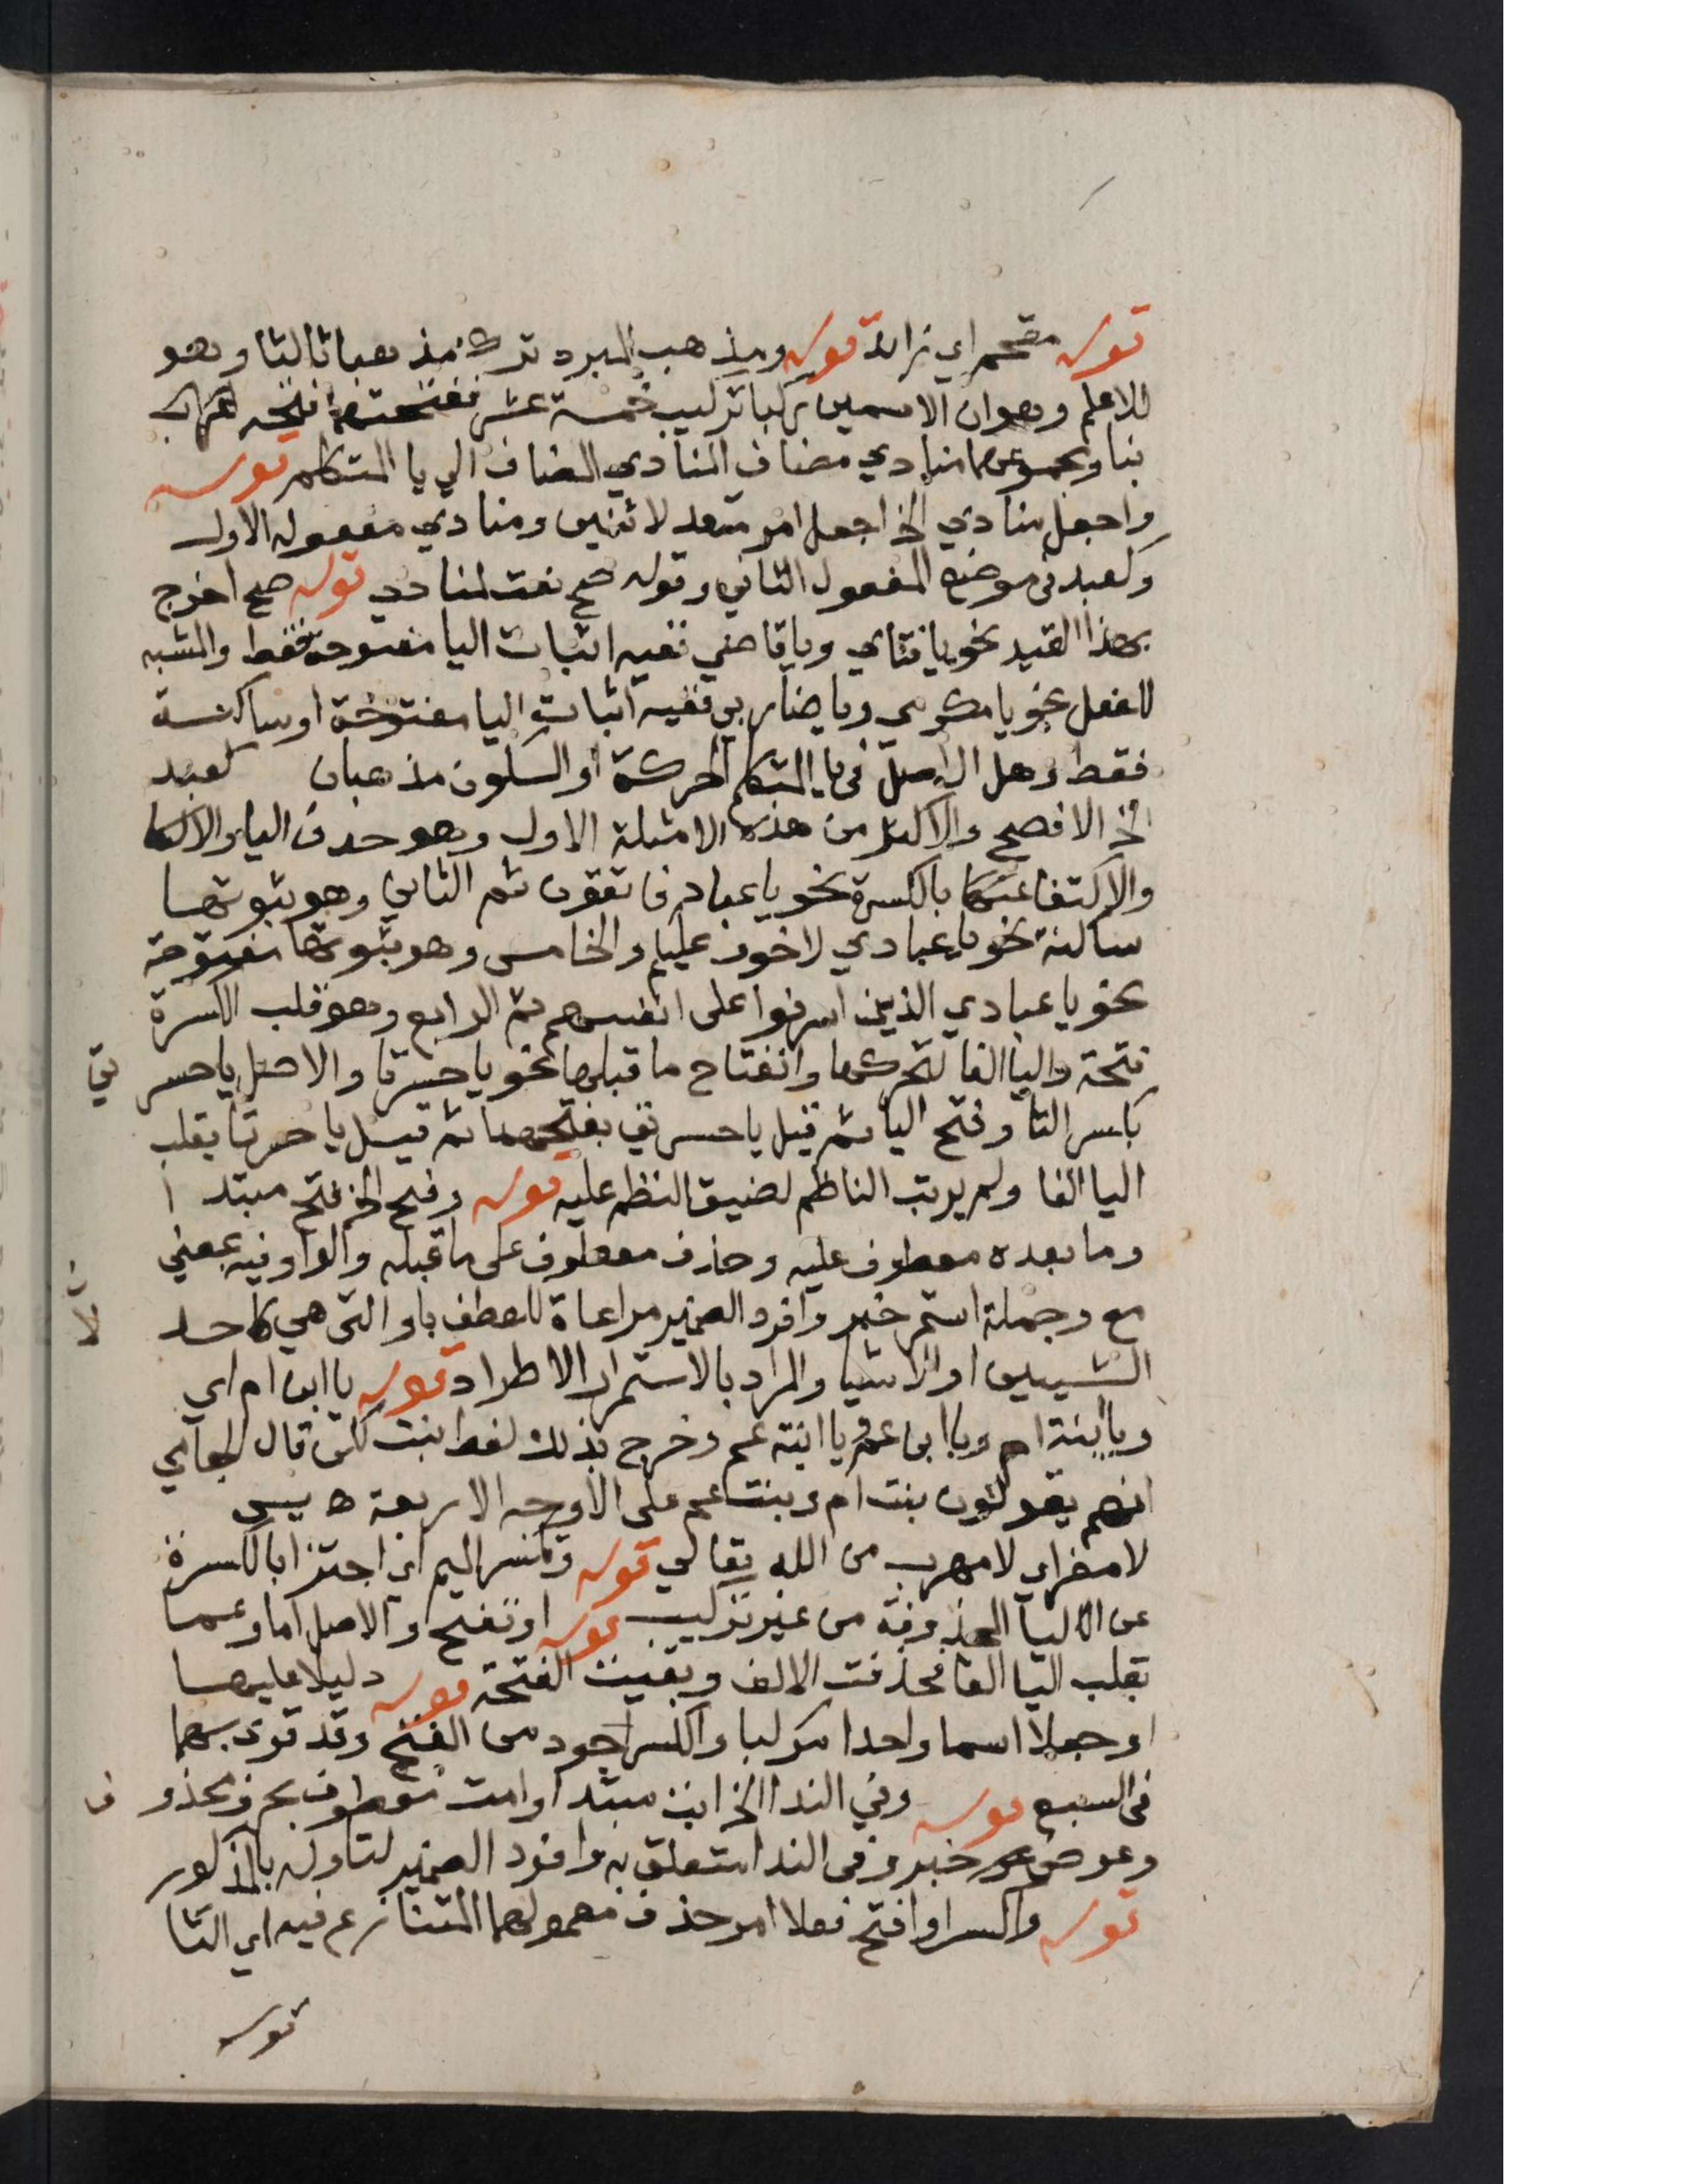 قوله مقحم اي زائد قوله ومذهب المبرد ترك مذهبا ثالثا وهو
للاعلم وهو ان الاسمين ركبا تركيب خمسة عشر ففتحتهما فتحة
بنا ومجموعهما منادي مضاف المنادي المضاف الي يا المتكلم قوله
واجعل منادي الخ اجعل امر متعد لاثنين ومنادي مفعوله الاول
وكعبد في موضع المفعول الثاني وقوله صح نعت لمنادي قوله صح اخرج
بهذا القيد نحو يا فتاي ويا قاضي ففيه اثبات اليا مفتوحة فقط والمشبه
للفعل نحو يا مكرمي ويا ضاربي ففيه اثبات اليا مفتوحة او ساكنة
فقط وهل الاصل في يا المتكلم الحركة او السكون مذهبان كعبد
الخ الافصح والاكثر من هذه الامثلة الاول وهو حذف اليا
والاكتفا عنها بالكسرة نحو يا عباد فاتقون ثم الثاني وهو ثبوتها
ساكنة نحو يا عبادي لا خوف عليكم والخامس وهو ثبوتها مفتوحة
نحو يا عبادي الذين اسرفوا على انفسهم ثم الرابع وهو قلب الكسرة
فتحة واليا الفا لتحركها وانفتاح ما قبلها نحو يا حسرتا والاصل يا حسرتي
بكسر التا وفتح اليا ثم قيل يا حسرتي بفتحهما ثم قيل يا حسرتا بقلب
اليا الفا ولم يرتب الناظم لضيق النظم عليه قوله وفتح الخ فتح مبتدا
وما بعده معطوف عليه وحذف معطوف على ما قبله والواو فيه بمعني
مع وجملة استمر خبر وافرد الضمير مراعاة للعطف باو التى هي لاحد
الشييين او الاشيا والمراد بالاستمرار الاطراد قوله يا ابن ام اي
ويا ابنة ام ويا ابن عم ويا ابنة عم وخرج بذلك لفظ بنت لكن قال
انهم يقولون بنت ام وبنت عم على الاوجه الاربعة ه يس
لا مفر اي لا مهرب من الله تعالي قوله وتكسر الميم اي اجتزا بالكسرة
عن اليا المحذوفة من غير تركيب قوله او تفتح والاصل اما وعما
بقلب اليا الفا فحذفت الالف وبقيت الفتحة دليلا عليها قوله
او جعلا اسما واحدا مركبا والكسر اجود من الفتح وقد قوي بهما
في السبع قوله وفي الندا الخ ابت مبتدا وامت معطوف بحرف محذوف
وعوض خبر وفي الندا متعلق به وافرد الضمير لتاوله بالمذكور
قوله واكسر او افتح فعلا امر حذف معمولهما المتنازع فيه اي التا
قوله